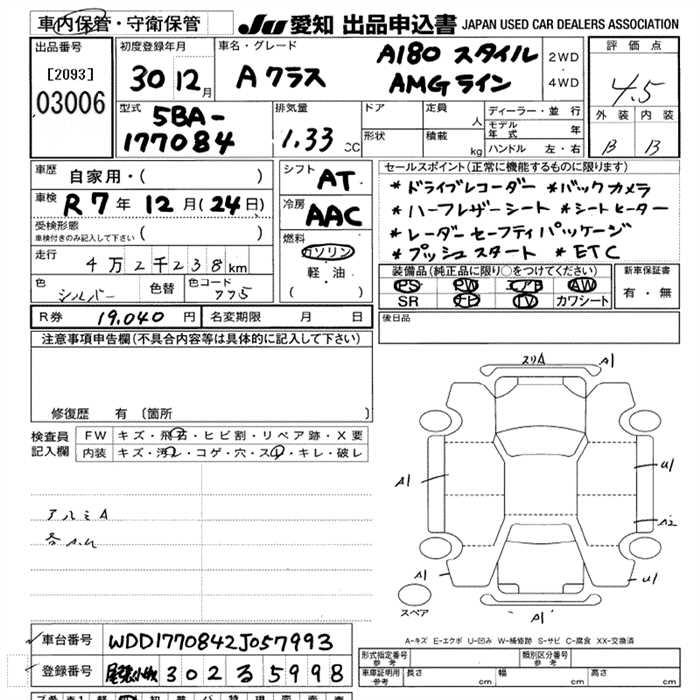 車内保管・守衛保管
JU 愛知 出品申込書 JAPAN USED CAR DEALERS ASSOCIATION
出品番号
[2093]
03006
初度登録年月
30 12月
車名・グレード
Aクラス
A180 スタイル
AMGライン
2WD
4WD
評価点
4.5
外装 内装
B B
型式
5BA-
177084
排気量
1.33 CC
ドア
形状
定員 人
積載 kg
ディーラー・並行
モデル年式 年
ハンドル 左・右
車歴
自家用・( )
車検
R7年12月(24日)
受検形態
車検付きのみ記入して下さい ( )
走行
4万2千238km
色
シルバー
色替
色コード
775
シフト
AT
冷房
AAC
燃料
ガソリン
軽・油
( )
セールスポイント(正常に機能するものに限ります)
*ドライブレコーダー *バックカメラ
*ハーフレザーシート *シートヒーター
*レーダーセーフティパッケージ
*プッシュスタート *ETC
装備品(純正品に限り○をつけてください)
PS PW エアB AW
SR ナビ TV カワシート
新車保証書
有・無
R券 19,040円
名変期限 月 日
後日品
注意事項申告欄(不具合内容等は具体的に記入して下さい)
修復歴 有 〔箇所 〕
検査員
記入欄
FW キズ・飛石・ヒビ割・リペア跡・X要
内装 キズ・汚レ・コゲ・穴・スレ・キレ・破レ
アルミA
各A.U
スリA
A1
A1
U1
A2
A1
U1
A1
スペア
A-キズ E-エクボ U-凹み W-補修跡 S-サビ C-腐食 XX-交換済
車台番号
WDD1770842J057993
登録番号
尾張小牧 302 る 5998
形式指定番号
参考
類別区分番号
参考
車庫証明用
参考
長さ cm
幅 cm
高さ cm